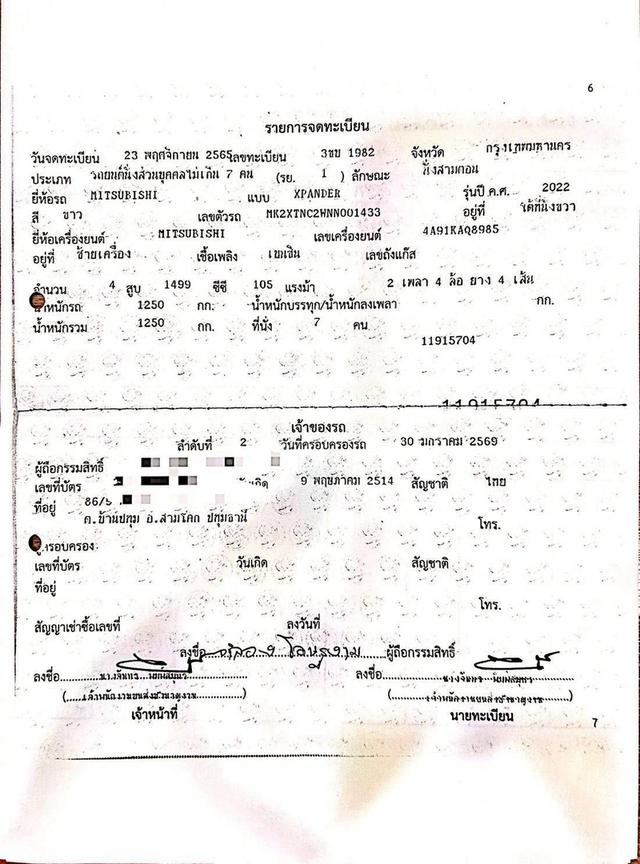 6
รายการจดทะเบียน
วันจดทะเบียน 23 พฤศจิกายน 2565 เลขทะเบียน 3ขบ 1982 จังหวัด กรุงเทพมหานคร
ประเภท รถยนต์นั่งส่วนบุคคลไม่เกิน 7 คน (รย. 1 ) ลักษณะ นั่งสามตอน
ยี่ห้อรถ MITSUBISHI แบบ XPANDER รุ่นปี ค.ศ. 2022
สี ขาว เลขตัวรถ MK2XTNC2WNN001433 อยู่ที่ ใต้ที่นั่งขวา
ยี่ห้อเครื่องยนต์ MITSUBISHI เลขเครื่องยนต์ 4A91KAQ8985
อยู่ที่ ซ้ายเครื่อง เชื้อเพลิง เบนซิน เลขถังแก๊ส
จำนวน 4 สูบ 1499 ซีซี 105 แรงม้า 2 เพลา 4 ล้อ ยาง 4 เส้น
น้ำหนักรถ 1250 กก. น้ำหนักบรรทุก/น้ำหนักลงเพลา กก.
น้ำหนักรวม 1250 กก. ที่นั่ง 7 คน
11915704
11915704
เจ้าของรถ
ลำดับที่ 2 วันที่ครอบครองรถ 30 มกราคม 2569
ผู้ถือกรรมสิทธิ์
เลขที่บัตร 9 พฤษภาคม 2514 สัญชาติ ไทย
ที่อยู่ 86/
ต.บ้านปทุม อ.สามโคก ปทุมธานี
โทร.
ผู้ครอบครอง
เลขที่บัตร วันเกิด สัญชาติ
ที่อยู่
โทร.
สัญญาเช่าซื้อเลขที่ ลงวันที่
ลงชื่อ ผู้ถือกรรมสิทธิ์
ลงชื่อ ลงชื่อ
เจ้าหน้าที่ นายทะเบียน
7